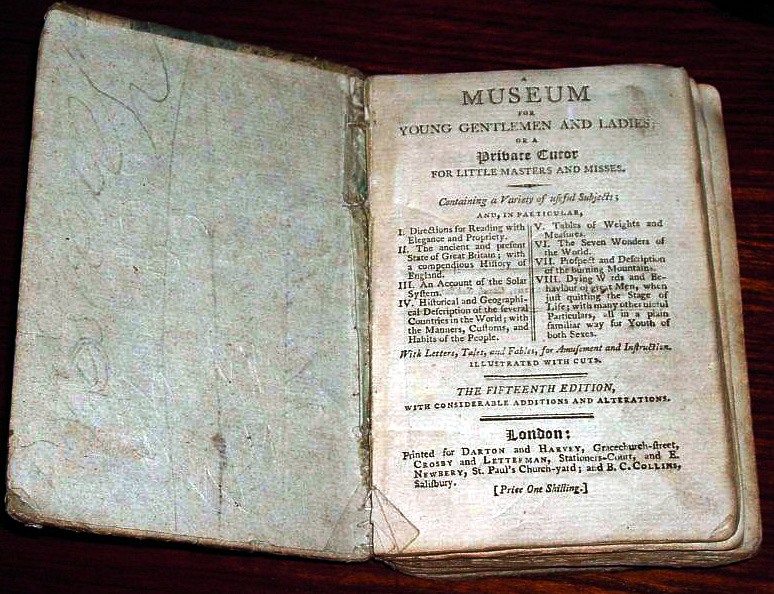 A
MUSEUM
FOR
YOUNG GENTLEMEN AND LADIES;
OR A
Private Tutor
FOR LITTLE MASTERS AND MISSES.
Containing a Variety of useful Subjects;
AND, IN PARTICULAR,
I. Directions for Reading with
Elegance and Propriety.
II. The ancient and present
State of Great Britain; with
a compendious History of
England.
III. An Account of the Solar
System.
IV. Historical and Geographi-
cal Description of the several
Countries in the World; with
the Manners, Customs, and
Habits of the People.
V. Tables of Weights and
Measures.
VI. The Seven Wonders of
the World.
VII. Prospect and Description
of the burning Mountains.
VIII. Dying Words and Be-
haviour of great Men, when
just quitting the Stage of
Life; with many other useful
Particulars, all in a plain
familiar way for Youth of
both Sexes.
With Letters, Tales, and Fables, for Amusement and Instruction.
ILLUSTRATED WITH CUTS.
THE FIFTEENTH EDITION,
WITH CONSIDERABLE ADDITIONS AND ALTERATIONS.
London:
Printed for DARTON and HARVEY, Gracechurch-street,
CROSBY and LETTERMAN, Stationers-Court, and E.
NEWBERY, St. Paul's Church-yard; and B. C. COLLINS,
Salisbury.
[Price One Shilling.]